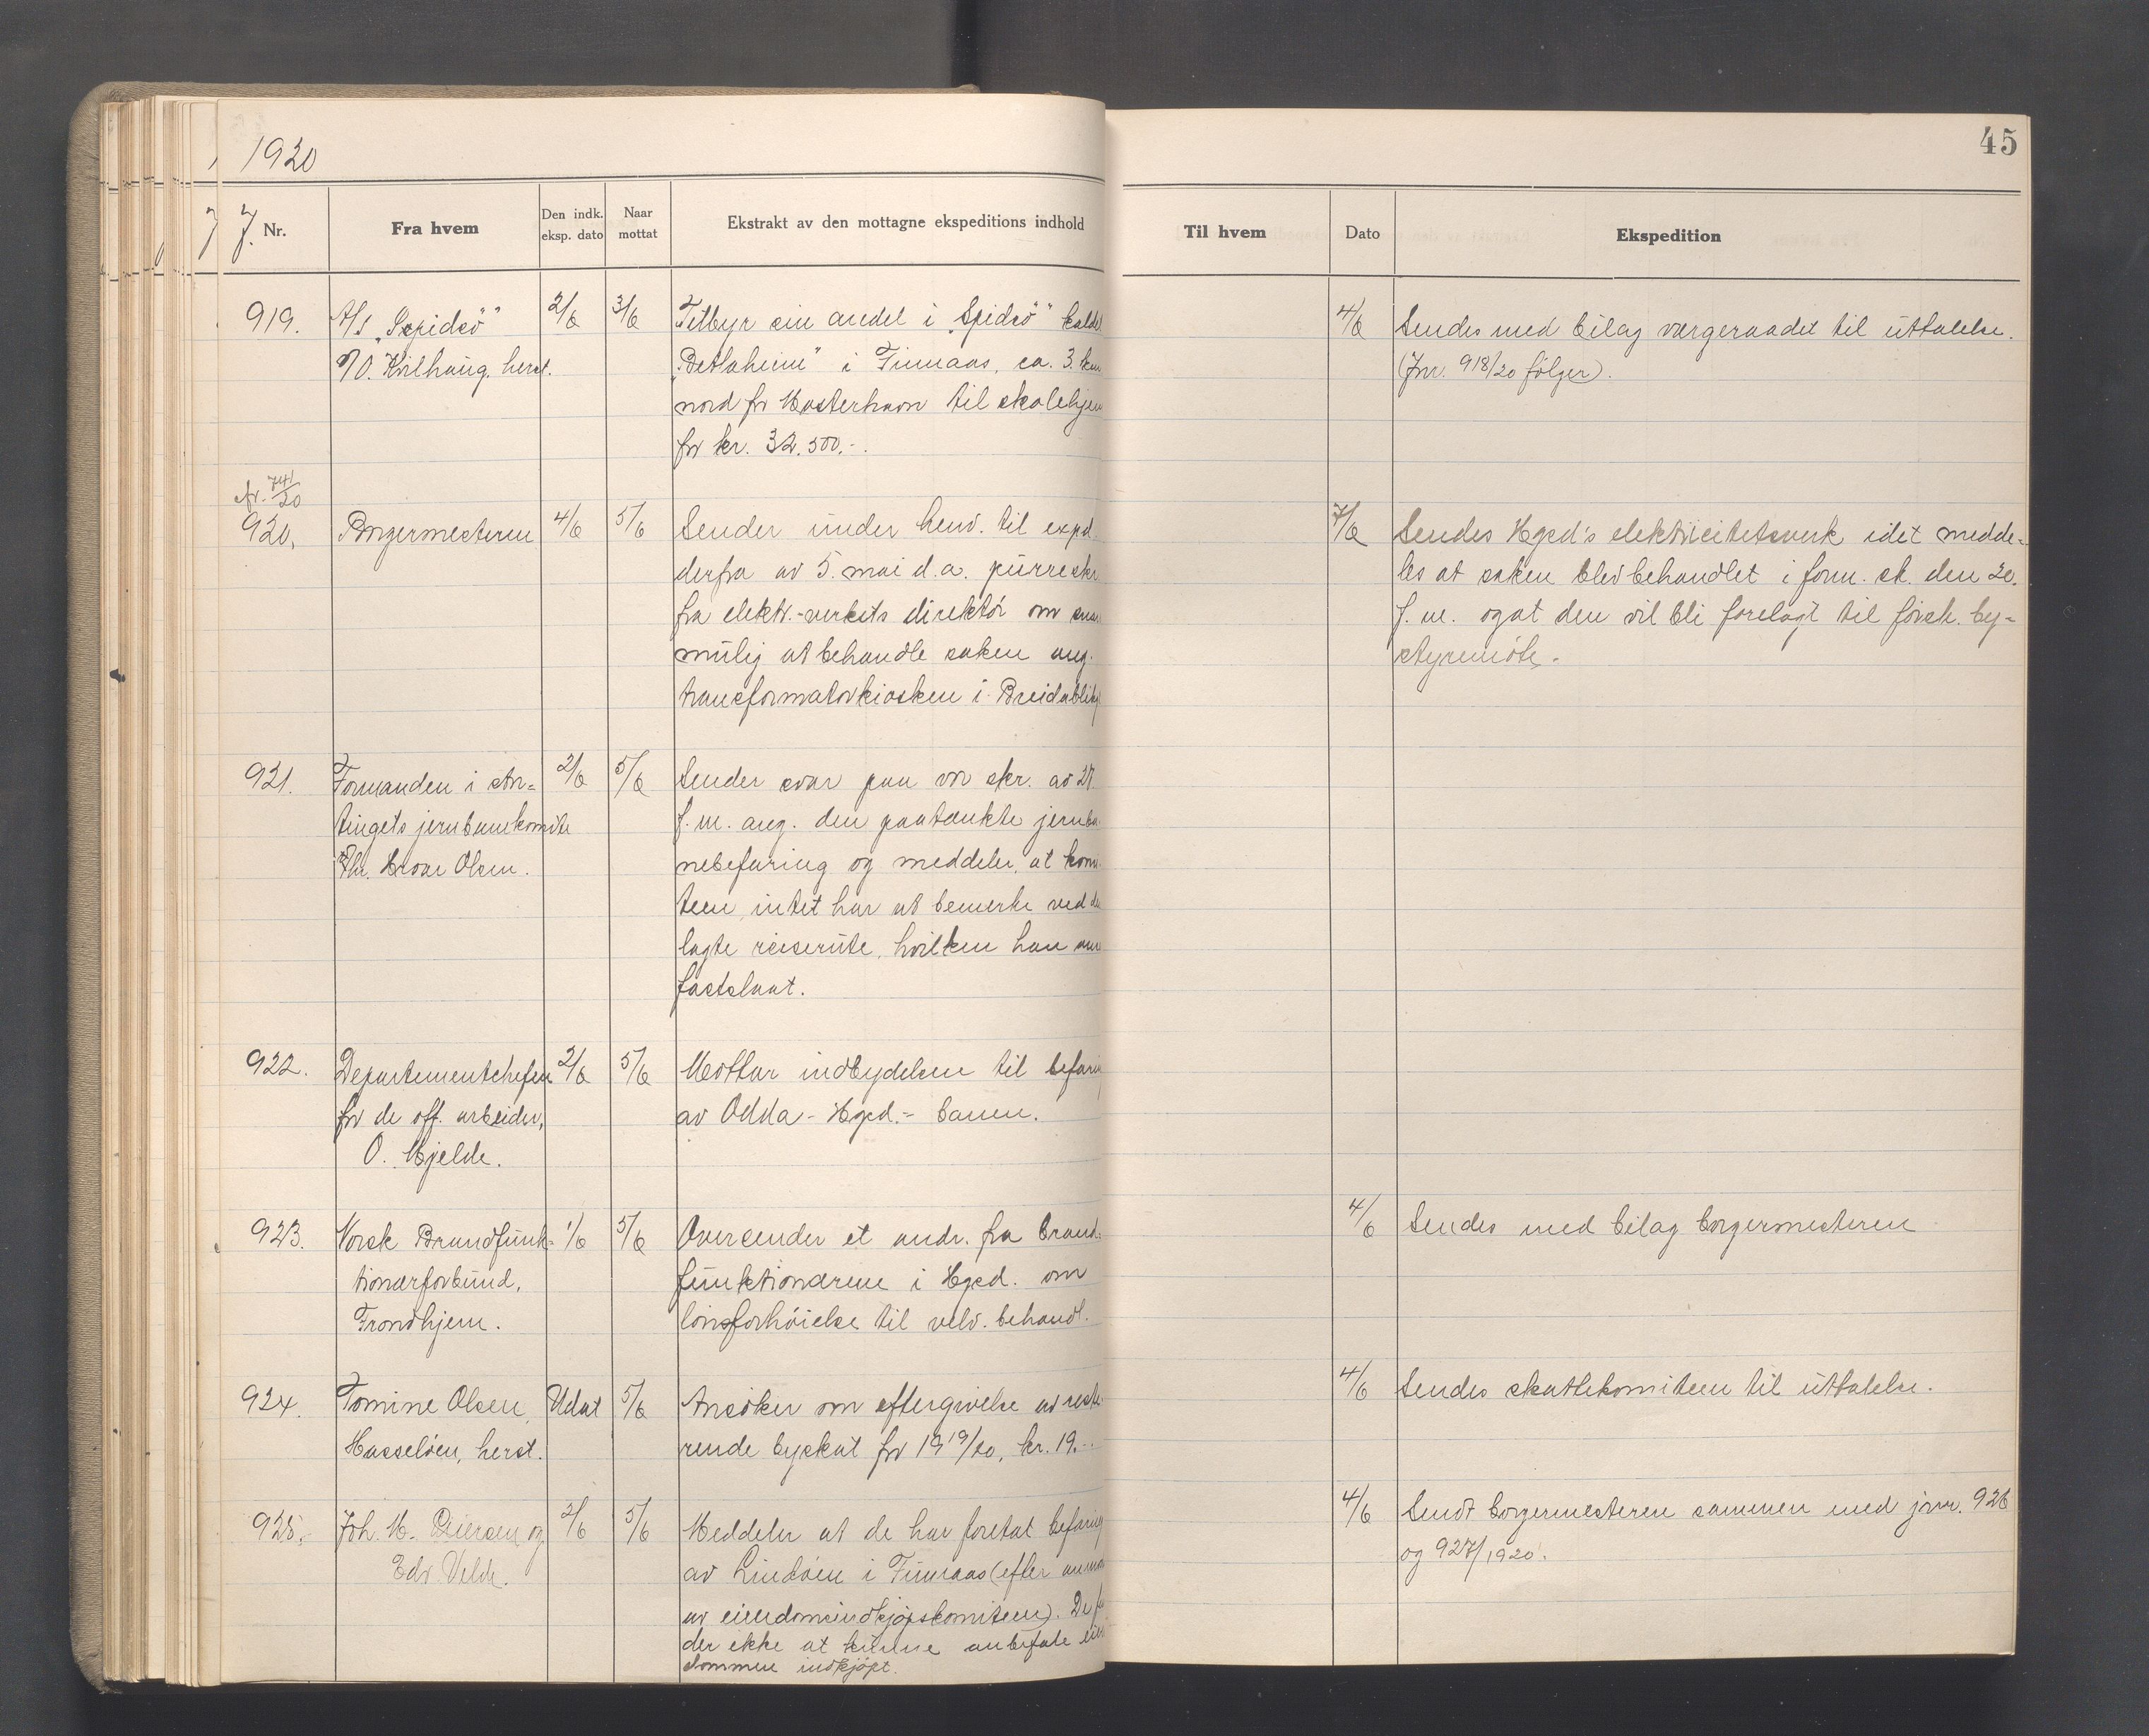 1920
J. Nr.
Fra hvem
Den indk. eksp. dato
Naar mottat
Ekstrakt av den mottagne ekspeditions indhold
919.
A/S „Spidsö"
v/O. Kvilhaug, herst.
2/6
3/6
Tilbyr sin andel i „Spidsö" kaldet
„Betlaheim" i Finnaas, ca. 3. km
nord for Mosterhavn til skolehjem
for kr. 32.500.-.
cfr. 741/20
920.
Borgermesteren
4/6
5/6
Sender under henv. til expd.
derfra av 5. mai d.a. purreskr.
fra elektr.-verkets direktör om snar
mulig at behandle saken ang.
transformatorkiosken i Breidablik
921.
Formanden i stor-
tingets jernbanekomite
Hr. Ivar Olsen.
2/6
5/6
Sender svar paa vor skr. av 27.
f.m. ang. den paatænkte jernba
nebefaring og meddeler, at komi-
teen intet har at bemerke ved den
lagte reiserute, hvilken han
fastslaat.
922.
Departementchefen
for de off. arbeider,
O. Mjelde.
2/6
5/6
Mottar indbydelsen til befaring
av Odda - Hgsd.- banen.
923.
Norsk Brandfunk-
tionærforbund,
Trondhjem.
1/6
5/6
Oversender et andr. fra brand-
funktionærene i Hgsd. om
lönsforhöielse til velv. behandl.
924.
Tomine Olsen,
Hasselöen, herst.
Udat
5/6
Ansöker om eftergivelse av reste-
rende byskat for 1919/20, kr. 19.-.
925.
Joh. M. Eliersen og
Edv. Velde.
2/6
5/6
Meddeler at de har foretat befaring
av Lindöen i Finnaas (efter anmod
av eiendomsindkjøpskomiteen). De fin
der ikke at kunne anbefale eien
dommen indkjøpt.
45
Til hvem
Dato
Ekspedition
4/6
Sendes med bilag vergeraadet til uttalelse.
(Jnr. 918/20 fölger).
7/6
Sendes Hgsd's elektricitetsverk idet medde-
les at saken blev behandlet i form. sk. den 20.
f.m. og at den vil bli forelagt til först. by-
styremöte.-
4/6
Sendes med bilag borgermesteren
4/6
Sendes skattekomiteen til uttalelse.
4/6
Sendt borgermesteren sammen med jnr. 926
og 927/1920.